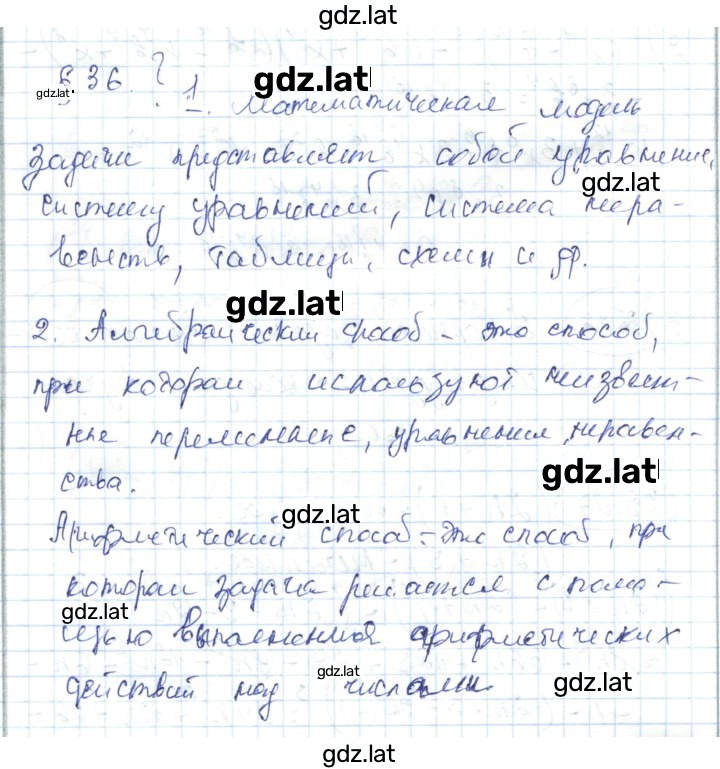 gdz.lat
§ 36. ? 1. Математическая модель
gdz.lat
gdz.lat
задачи представляет собой уравнение,
gdz.lat
систему уравнений, система нера-
венств, таблицы, схемы и др.
gdz.lat
2. Алгебраический способ - это способ,
при котором используют неизвест-
ные переменные, уравнения, неравен-
gdz.lat
ства.
gdz.lat
Арифметический способ - это способ, при
котором задача решается с помо-
gdz.lat
щью выполнения арифметических
gdz.lat
действий над числами.
gdz.lat
gdz.lat